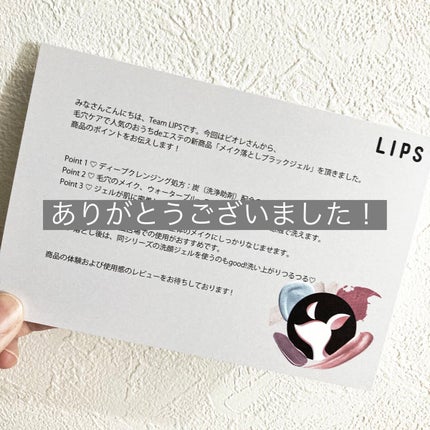 LIPS
みなさんこんにちは、Team LIPSです。今回はビオレさんから、
毛穴ケアで人気のおうちdeエステの新商品「メイク落としブラックジェル」を頂きました。
商品のポイントをお伝えします！
Point 1 ♡ ディープクレンジング処方：炭（洗浄助剤）配合
Point 2 ♡ 毛穴のメイク、ウォータープルーフ
Point 3 ♡ ジェルが肌に密着
で洗えます。
ありがとうございました！
のメイクにしっかりなじませます。
での使用がおすすめです。
落とし後は、同シリーズの洗顔ジェルを使うのもgood!洗い上がりつるつる♡
商品の体験および使用感のレビューをお待ちしております！